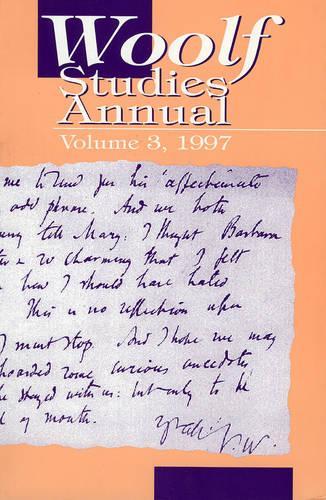 Woolf
Studies
Annual
Volume 3, 1997
me to find for his "affectionate
odd phrase. And we both
tell Mary: I thought Barbara
so charming that I felt
how I should have hated
This is no reflection upon
I must stop. And I hope we may
hoarded some curious anecdotes
stayed with us: but only to be
of mouth.
V.W.